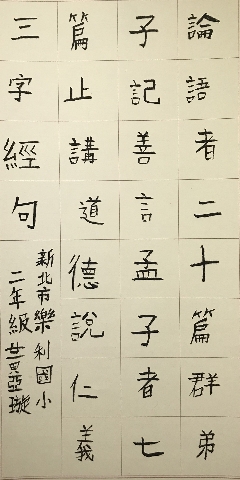 論語者二十篇群弟
子記善言孟子者七
篇止講道德說仁義
三字經句
新北市樂利國小
二年級黃亞璇